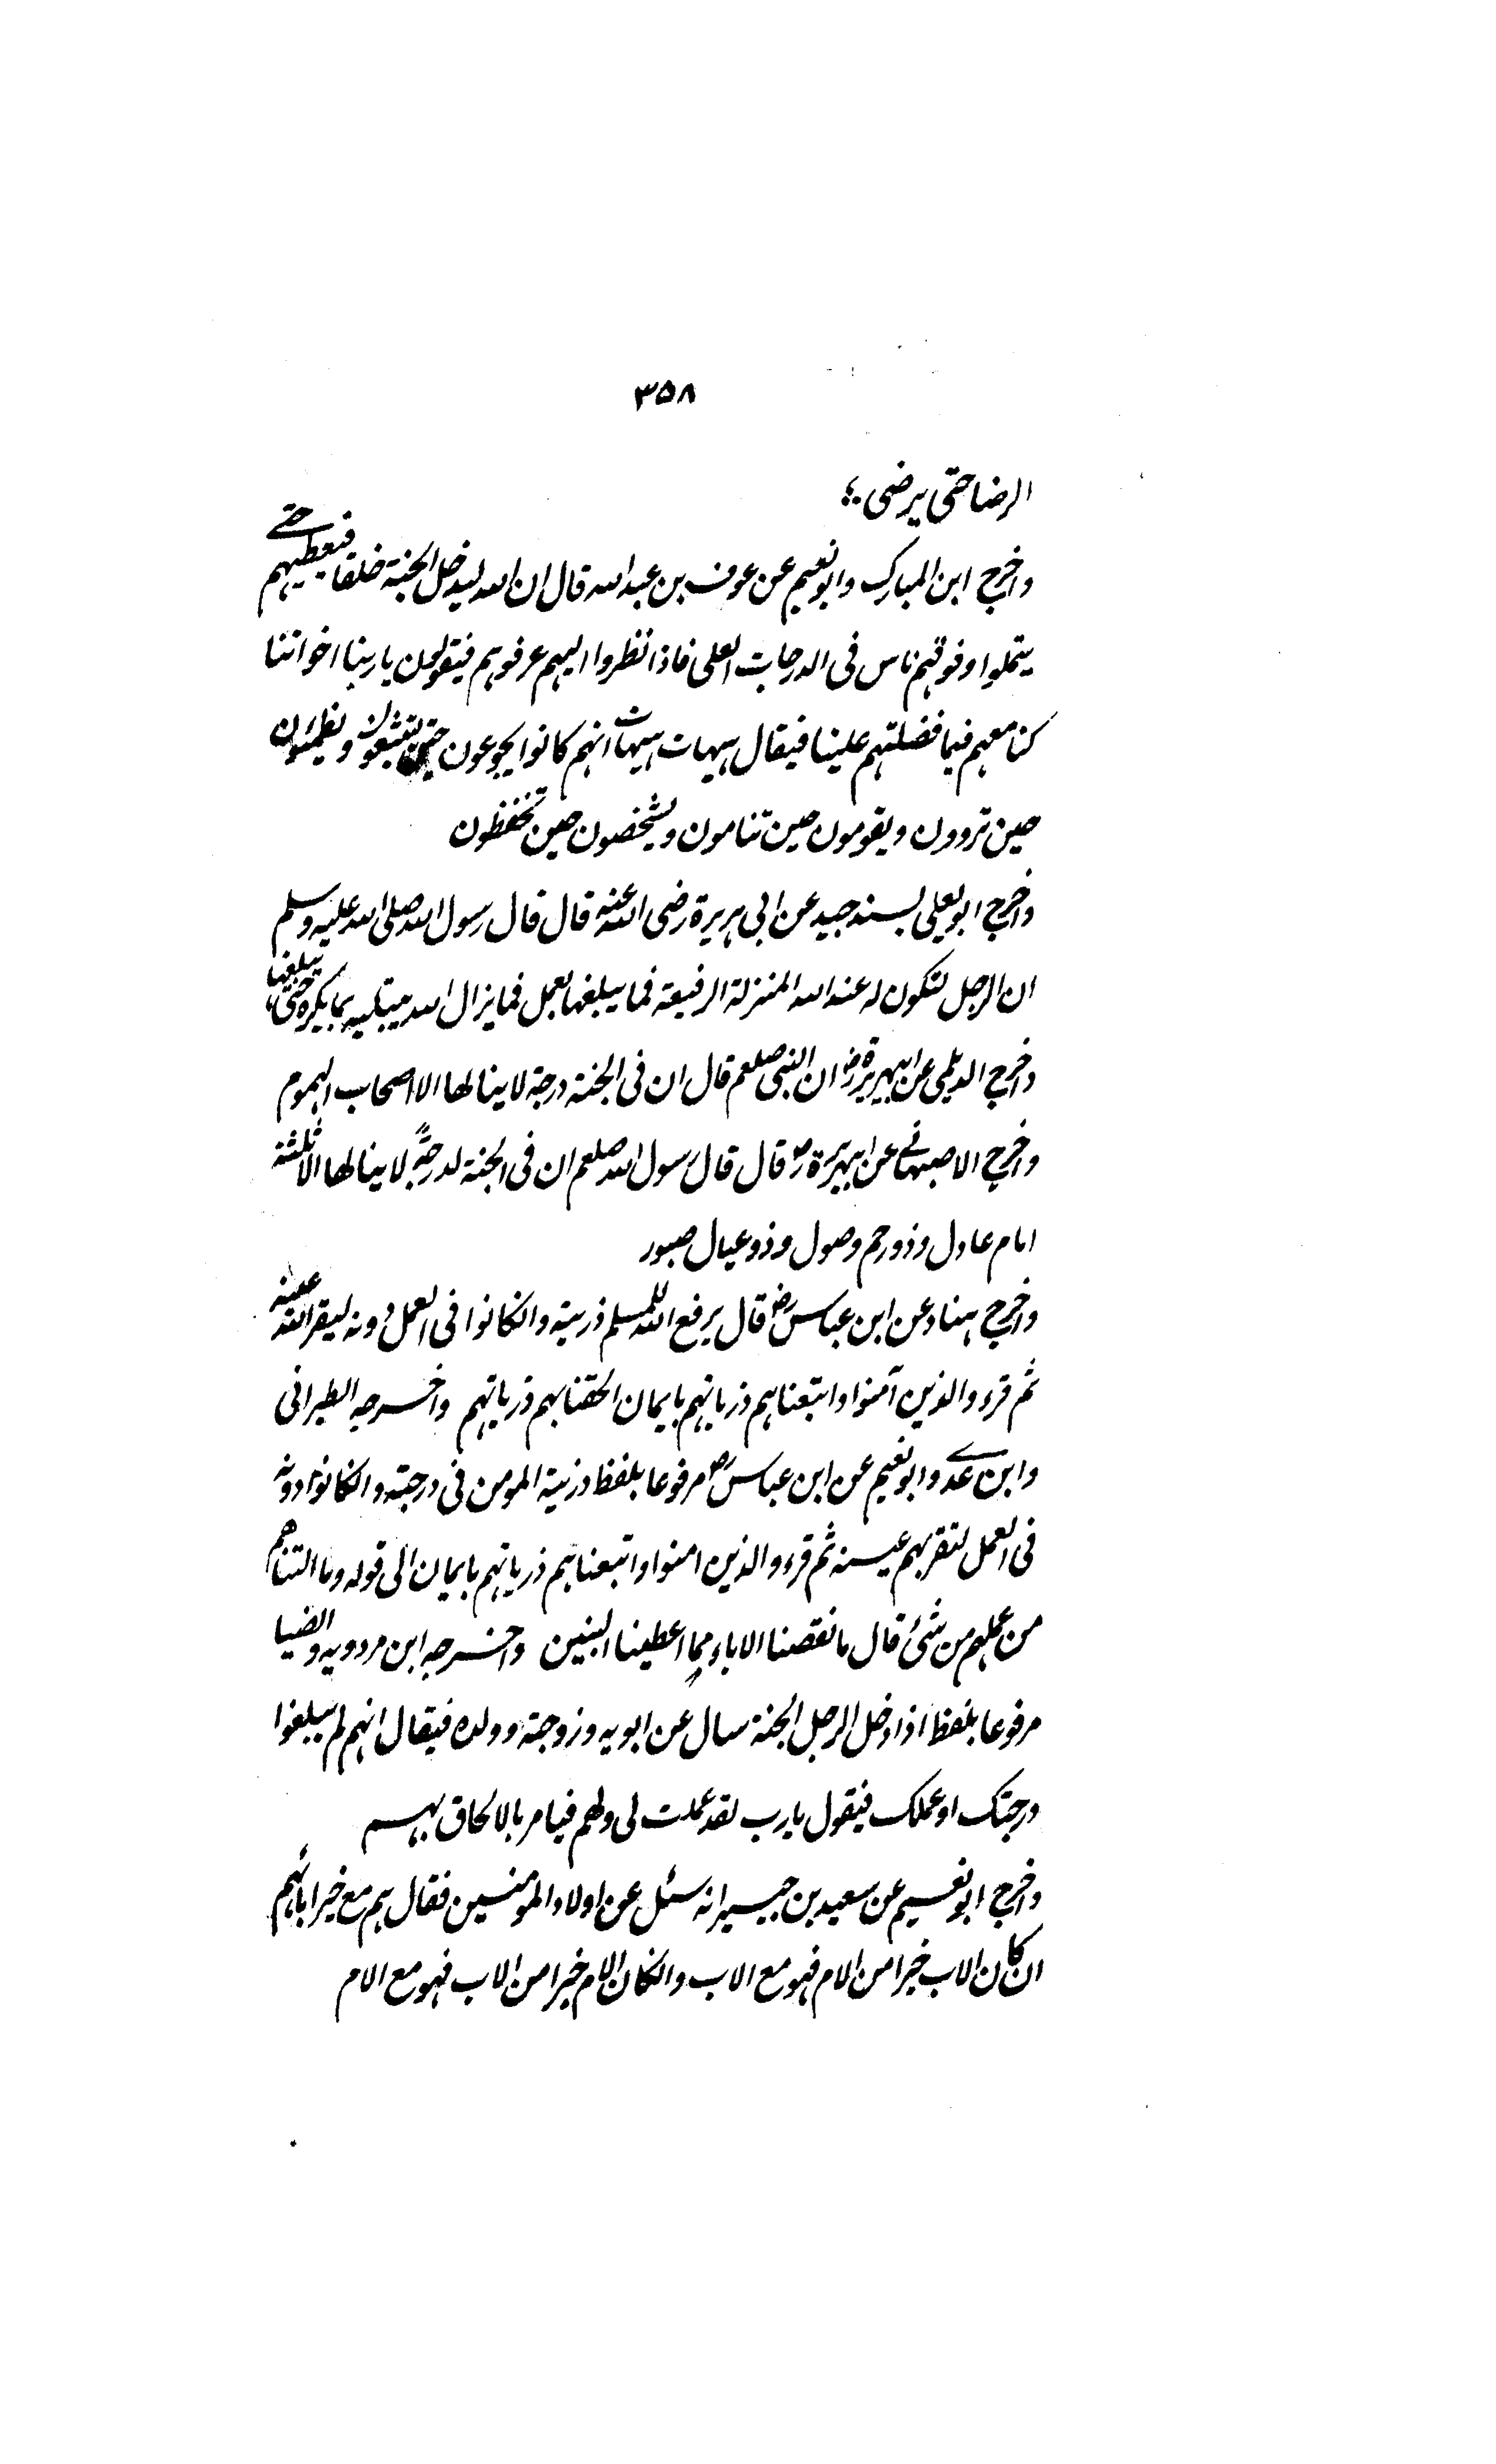 ۳۵۸
الرضا حتى يرضى ؛
واخرج ابن المبارك وابونعيم عن عوف بن عبدالله قال ان الله ليدخل الجنة خلقا فيعطيهم حتے
يتملوا وفوقهم ناس فى الدرجات العلى فاذا نظروا اليهم عرفوهم فيقولون يا ربنا اخواننا
كنا معهم فبما فضلتهم علينا فيقال ہيہات ہيہات انهم كانوا يجوعون حين تشبعون ويظمئون
حين تروون ويقومون حين تنامون ويشخصون حين تخفظون
واخرج ابويعلى بسند جيد عن ابى ہريرة رضى الله عنه قال قال رسول الله صلى الله عليه وسلم
ان الرجل لتكون له عند الله المنزلة الرفيعة فما يبلغها بعمل فما يزال الله يبتليه بما يكره حتى يبلغها
واخرج الديلمى عن ابيہريرة رض ان النبى صلعم قال ان فى الجنة درجة لا ينالها الا اصحاب الہموم
واخرج الاصبهانے عن ابيہريرة رض قال قال رسول الله صلعم ان فى الجنة لدرجةً لا ينالها الا ثلثة
امام عادل وذو رحم وصول وذو عيال صبور
واخرج ہناد عن ابن عباس رض قال يرفع الله للمسلم ذريته وانكانوا فى العمل دونه ليقر الله عينه
ثم قرء والذين آمنوا واتبعناہم ذرياتهم بايمان الحقنا بهم ذرياتهم واخرجه الطبرانى
وابن عدے وابونعيم عن ابن عباس رض مرفوعا بلفظ ذرية المومن فى درجته وانكانوا دونه
فى العمل لتقر بهم عينه ثم قرء والذين امنوا واتبعناہم ذرياتهم بايمان الى قوله وما التناهم
من عملهم من شئ قال ما نقصنا الاباء مما اعطينا البنين واخرجه ابن مردويه والضيا
مرفوعا بلفظ اذا دخل الرجل الجنة سال عن ابويه وزوجته وولده فيقال انهم لم يبلغوا
درجتك او عملك فيقول يا رب لقد عملت لى ولهم فيامر بالالحاق بهم
واخرج ابونعيم عن سعيد بن جبير انه سئل عن اولاد المومنين فقال ہم مع خير ابائهم
ان كان الاب خيرا من الام فهو مع الاب وانكان الام خيرا من الاب فهو مع الام